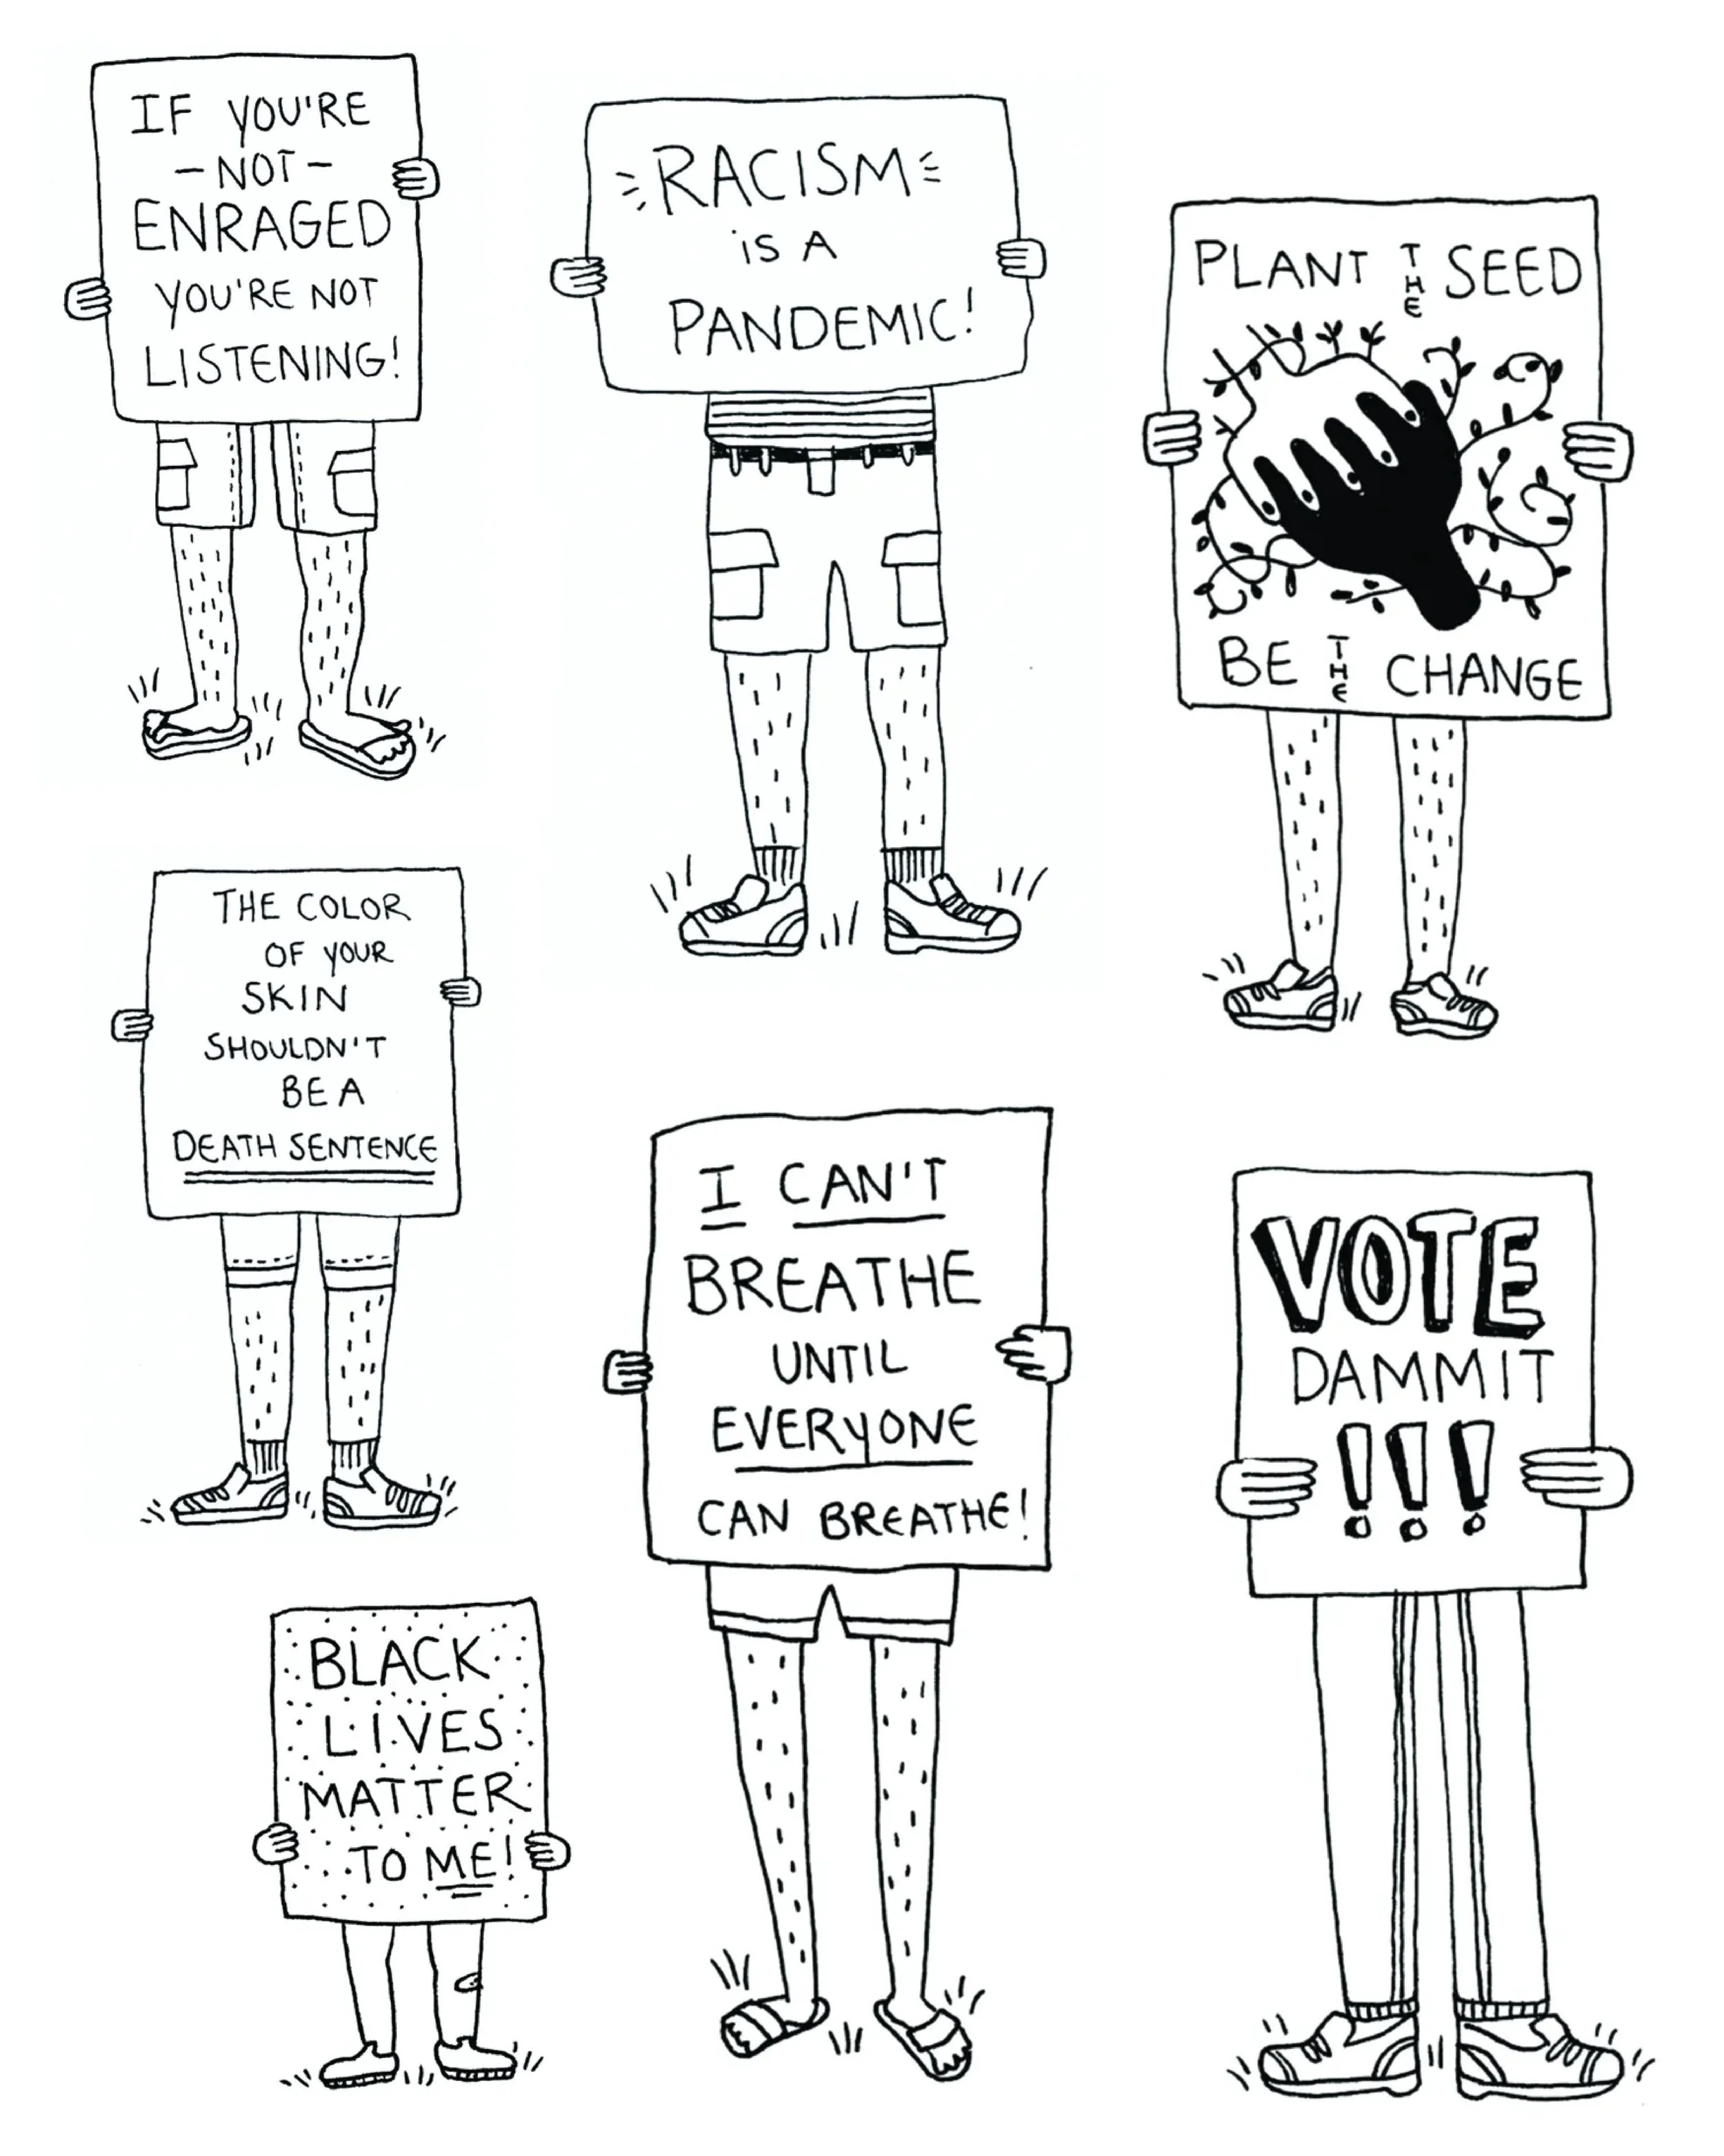 IF YOU'RE
-NOT-
ENRAGED
YOU'RE NOT
LISTENING!
RACISM
IS A
PANDEMIC!
PLANT THE SEED
BE THE CHANGE
THE COLOR
OF YOUR
SKIN
SHOULDN'T
BE A
DEATH SENTENCE
I CAN'T
BREATHE
UNTIL
EVERYONE
CAN BREATHE!
VOTE
DAMMIT
!!!
BLACK
LIVES
MATTER
TO ME!